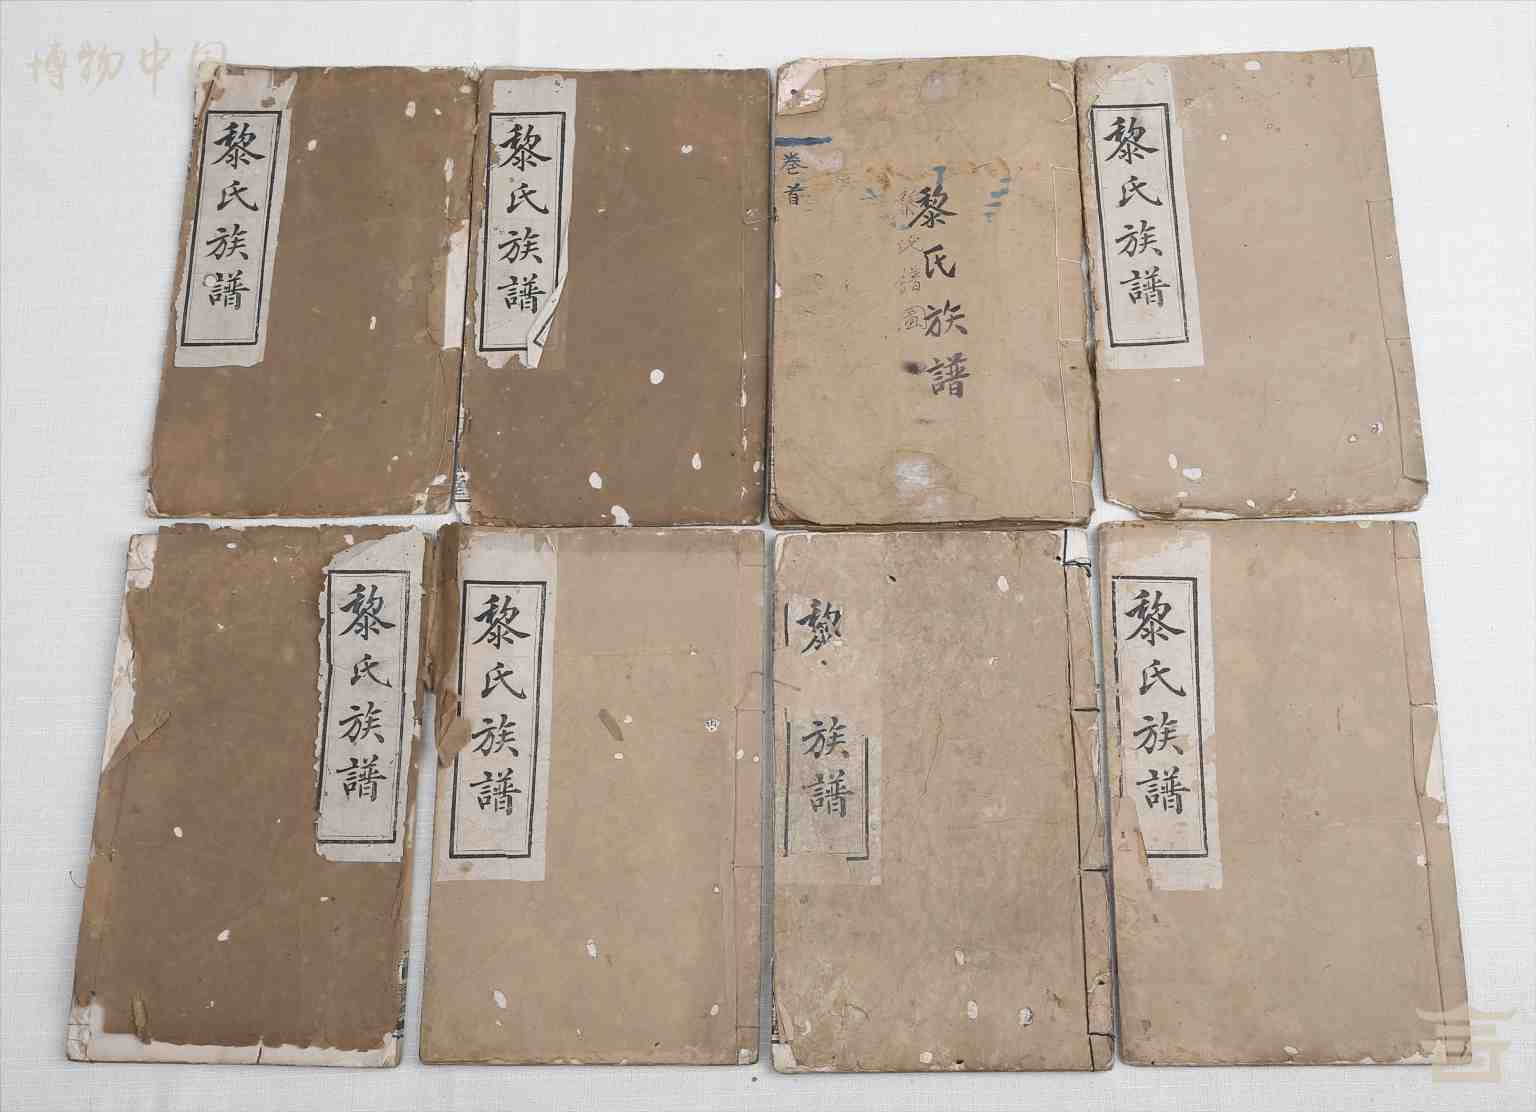 博物中国
黎氏族譜
黎氏族譜
卷首
黎氏族譜
黎氏譜圖
黎氏族譜
黎氏族譜
黎氏族譜
黎
族譜
黎氏族譜